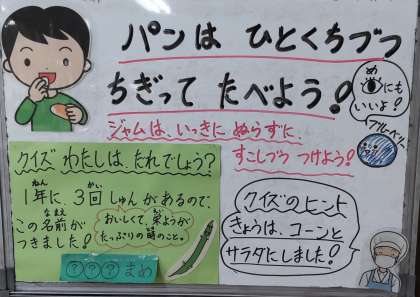 パンは ひとくちづつ
ちぎって たべよう!
めにも
いいよ!
ブルーベリー
ジャムは、いっきに ぬらずに、
すこしづつ つけよう!
クイズ わたしは、だれでしょう?
1年に、3回 しゅんがあるので、
ねん かい
この名前が
なまえ
つきました!
おいしくて、栄ようが
えい
たっぷりの時のこと。
とき
???まめ
クイズのヒント
きょうは、コーンと
サラダにしました!